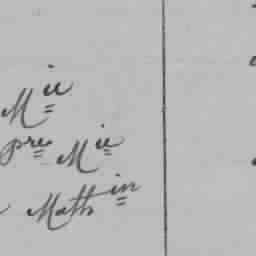 Mie
pre Mie
Math in